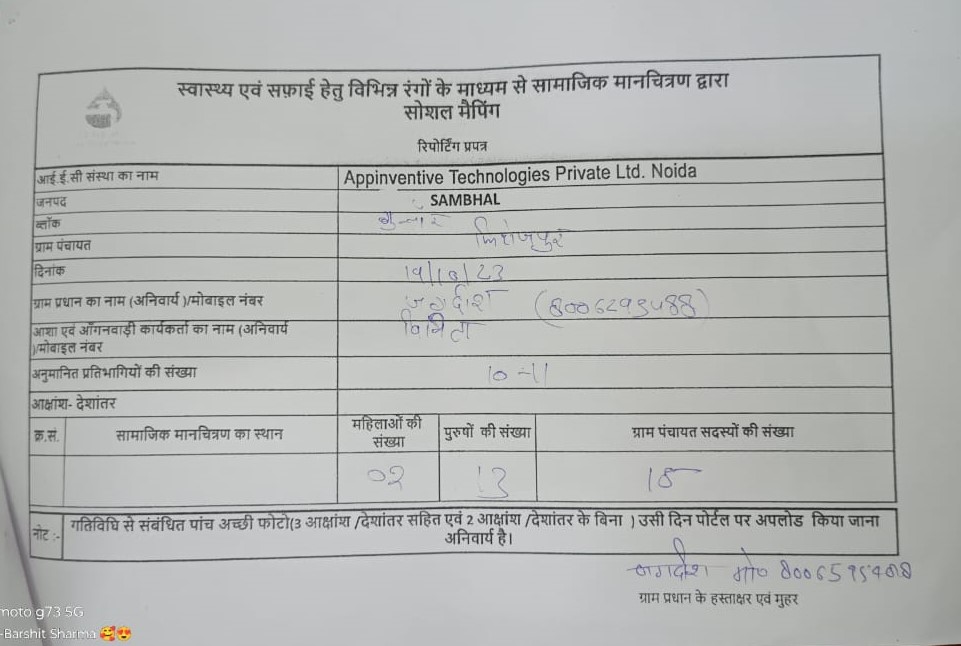 स्वास्थ्य एवं सफ़ाई हेतु विभिन्न रंगों के माध्यम से सामाजिक मानचित्रण द्वारा
सोशल मैपिंग
रिपोर्टिंग प्रपत्र
आई.ई.सी संस्था का नाम Appinventive Technologies Private Ltd. Noida
जनपद SAMBHAL
ब्लॉक
ग्राम पंचायत
दिनांक 19/10/23
ग्राम प्रधान का नाम (अनिवार्य )/मोबाइल नंबर जगदीश
आशा एवं आँगनवाड़ी कार्यकर्ता का नाम (अनिवार्य
)/मोबाइल नंबर
अनुमानित प्रतिभागियों की संख्या 10-11
आक्षांश- देशांतर
क्र.सं. सामाजिक मानचित्रण का स्थान महिलाओं की संख्या पुरुषों की संख्या ग्राम पंचायत सदस्यों की संख्या
02 13
नोट :- गतिविधि से संबंधित पांच अच्छी फोटो(3 आक्षांश /देशांतर सहित एवं 2 आक्षांश /देशांतर के बिना ) उसी दिन पोर्टल पर अपलोड किया जाना
अनिवार्य है।
जगदीश मो०
ग्राम प्रधान के हस्ताक्षर एवं मुहर
moto g73 5G
-Barshit Sharma 🥰😍